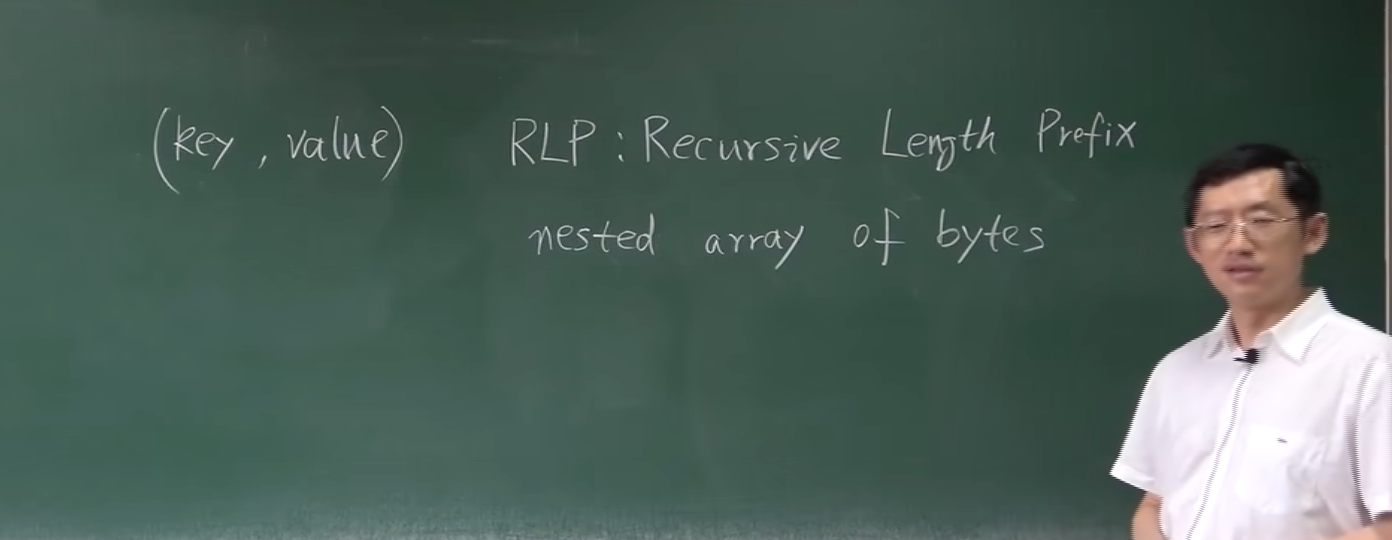 (key, value) RLP: Recursive Length Prefix
nested array of bytes